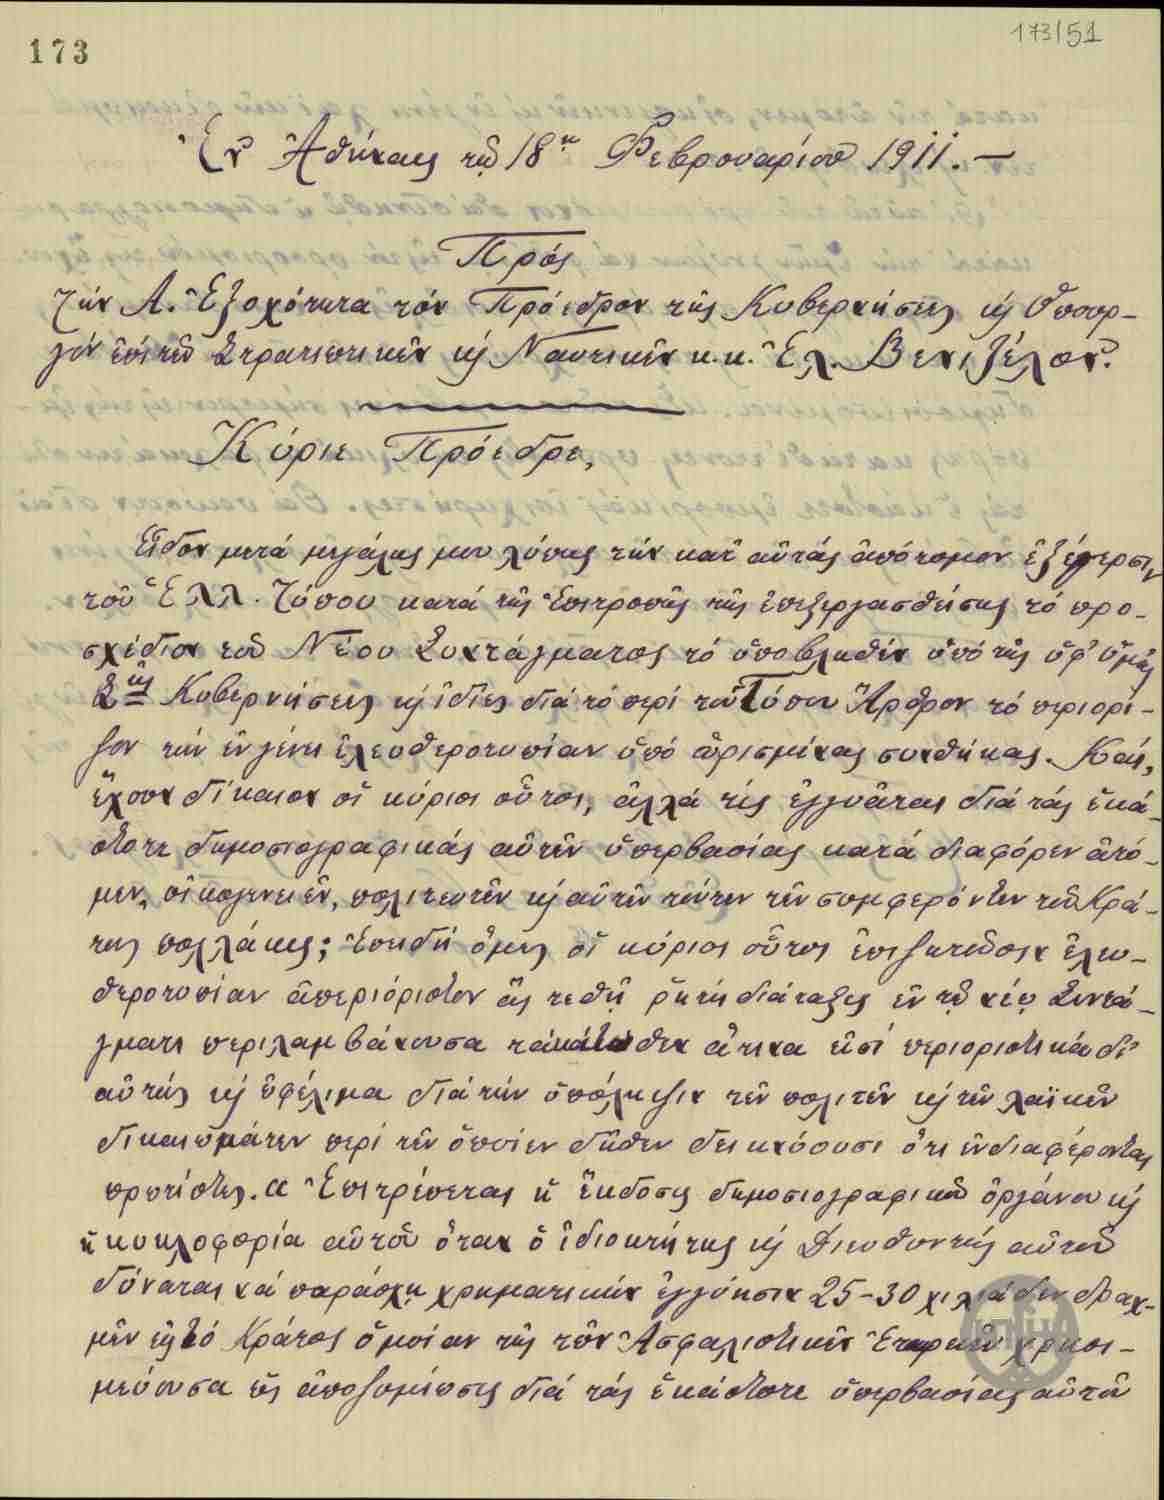 173
173/51
Ἐν Ἀθήναις τῇ 18ῃ Φεβρουαρίου 1911. —
Πρὸς
Τὴν Α. Ἐξοχότητα τὸν Πρόεδρον τῆς Κυβερνήσεως κ' Ὑπουρ-
γὸν ἐπὶ τῶν Στρατιωτικῶν κ' Ναυτικῶν κ.κ. Ἐλ. Βενιζέλον.
Κύριε Πρόεδρε,
Εἶδον μετὰ μεγάλης μου λύπης τὴν κατ' αὐτὰς ἀπότομον ἐξέγερσιν
τοῦ Ἑλλ. Τύπου κατὰ τῆς Ἐπιτροπῆς τῆς ἐπεξεργασθείσης τὸ προ-
σχέδιον τοῦ Νέου Συντάγματος τὸ ὑποβληθὲν ὑπὸ τῆς ὑφ' ὑμᾶς
Σης Κυβερνήσεως κ' ἰδίως διὰ τὸ περὶ τοῦ Τύπου Ἄρθρον τὸ περιορί-
ζον τὴν ἐν γένει ἐλευθεροτυπίαν ὑπὸ ὡρισμένας συνθήκας. Καὶ,
ἔχουν δίκαιον οἱ κύριοι οὗτοι, ἀλλὰ τίς ἐγγυᾶται διὰ τὰς ἑκά-
στοτε δημοσιογραφικὰς αὐτῶν ὑπερβασίας κατὰ διαφόρων ἀτό-
μων, οἰκογενειῶν, πολιτευτῶν κ' αὐτῶν τούτων τῶν συμφερόντων τοῦ Κρά-
τους πολλάκις; Ἐπειδὴ ὅμως οἱ κύριοι οὗτοι ἐπιζητοῦσιν ἐλευ-
θεροτυπίαν ἀπεριόριστον ἂς τεθῇ ῥητὴ διάταξις ἐν τῷ νέῳ Συντά-
γματι περιλαμβάνουσα τὰ κάτωθεν ἅτινα εἰσὶ περιοριστικὰ δι'
αὐτοὺς κ' ὠφέλιμα διὰ τὴν ὑπόληψιν τῶν πολιτῶν κ' τῶν λαϊκῶν
δικαιωμάτων περὶ τῶν ὁποίων δῆθεν δεικνύουσι ὅτι ἐνδιαφέρονται
πρωτίστως. α Ἐπιτρέπεται ἡ ἔκδοσις δημοσιογραφικοῦ ὀργάνου κ'
ἡ κυκλοφορία αὐτοῦ ὅταν ὁ ἰδιοκτήτης κ' Διευθυντὴς αὐτοῦ
δύναται νὰ παράσχῃ χρηματικὴν ἐγγύησιν 25-30 χιλιάδων δραχ-
μῶν εἰς τὸ Κράτος ὁμοίαν τῆς τῶν Ἀσφαλιστικῶν Ἑταιριῶν χρησι-
μεύουσα ὡς ἀποζημίωσις διὰ τὰς ἑκάστοτε ὑπερβασίας αὐτοῦ